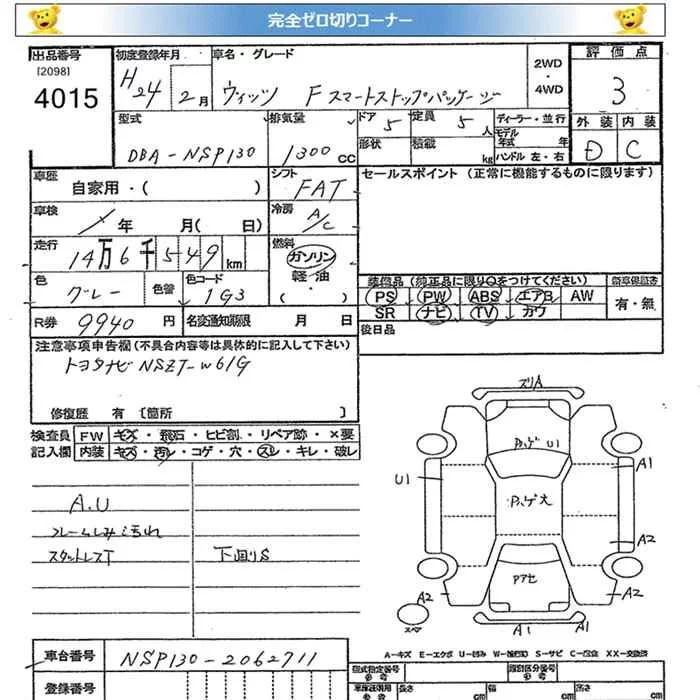 完全ゼロ切りコーナー
出品番号
[2098]
4015
初度登録年月
H24 2月
車名・グレード
ヴィッツ F スマートストップパッケージ
2WD
・
4WD
評価点
3
外装 内装
D C
型式
DBA-NSP130
排気量
1300 cc
ドア 5
定員 5 人
形状
積載 kg
ディーラー・並行
モデル年式 年
ハンドル 左・右
車歴
自家用・( )
シフト
FAT
車検
年 月( 日)
冷房
A/C
走行
14万6千549 km
燃料
ガソリン
軽・油
・
( )
色
グレー
色替
色コード
1G3
R券 9940 円
名変通知期限 月 日
セールスポイント (正常に機能するものに限ります)
装備品 (純正品に限り○をつけてください)
PS PW ABS エアB AW
SR ナビ TV カワ
新車保証書
有・無
後日品
注意事項申告欄(不具合内容等は具体的に記入して下さい)
トヨタナビ NSZT-W61G
修復歴 有 [箇所 ]
検査員
記入欄
FW キズ・飛石・ヒビ割・リペア跡・×要
内装 キズ・汚レ・コゲ・穴・スレ・キレ・破レ
A.U
スタットレスT
下回りS
ズリA
U1
U1
A1
A2
A2
A2
A1
A1
スペア
A-キズ E-エクボ U-凹み S-サビ C-腐食 XX-交換済
車台番号
NSP130-2062711
登録番号
型式指定番号
参考
類別区分番号
参考
長さ cm
幅 cm
高さ cm